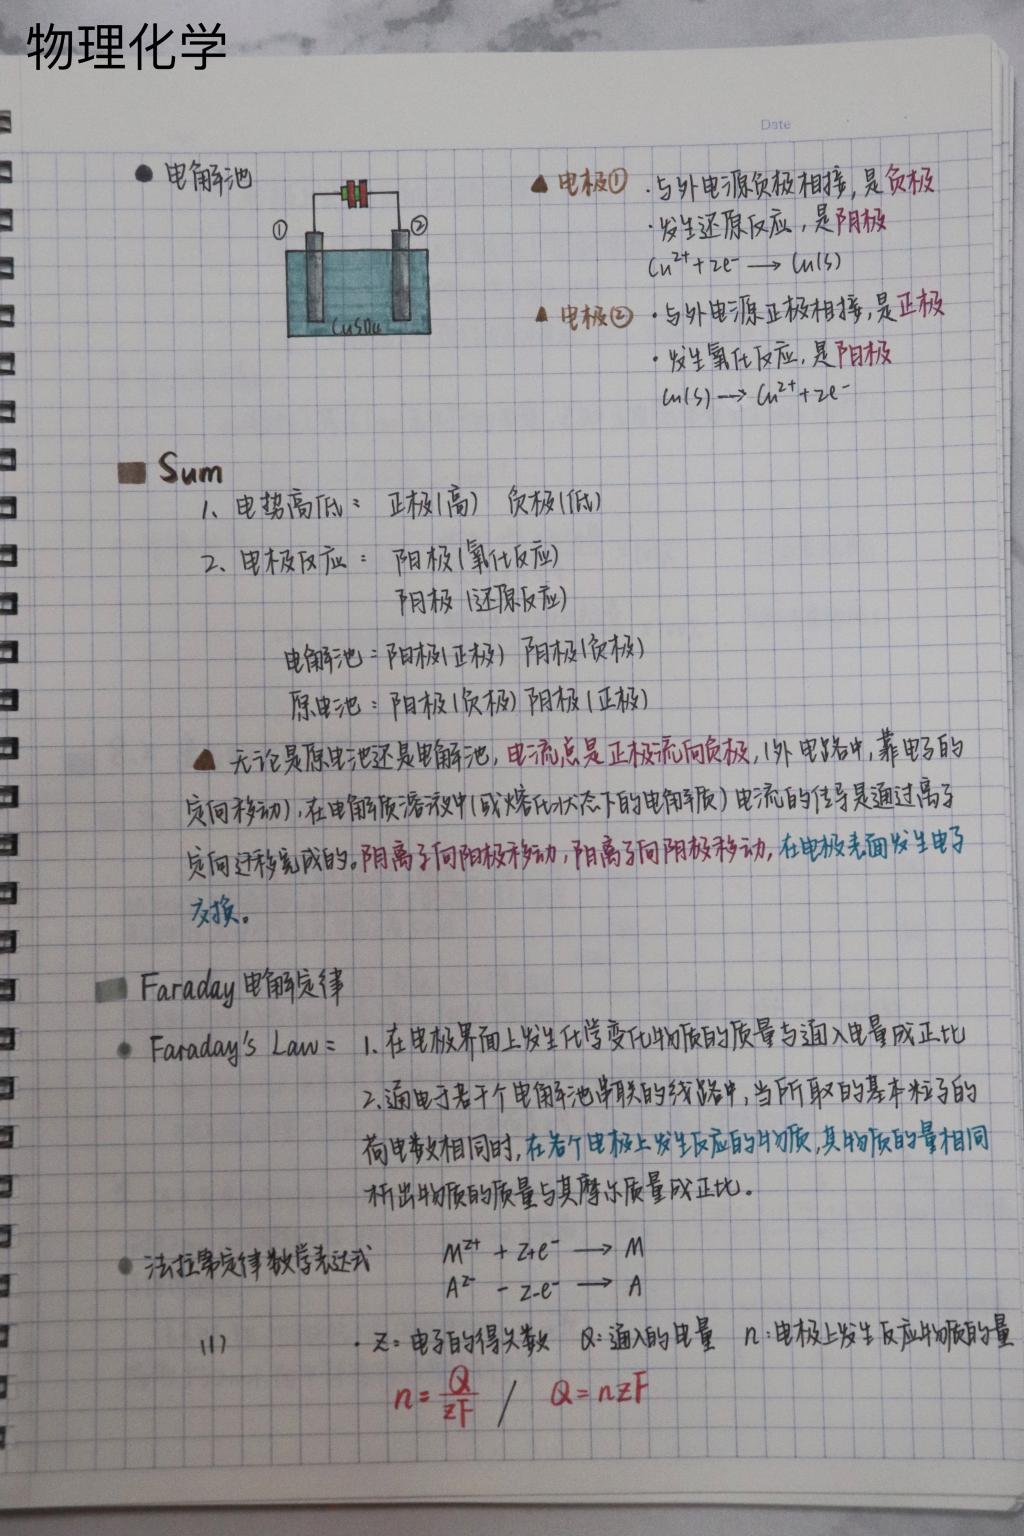 物理化学
Date
● 电解池
① ②
CuSO4
▲ 电极① ·与外电源负极相接,是负极
·发生还原反应,是阴极
Cu²⁺+2e⁻ → Cu(s)
▲ 电极② ·与外电源正极相接,是正极
·发生氧化反应,是阳极
Cu(s) → Cu²⁺+2e⁻
■ Sum
1、电势高低: 正极(高) 负极(低)
2、电极反应: 阳极(氧化反应)
阴极(还原反应)
电解池:阳极(正极) 阴极(负极)
原电池:阳极(负极) 阴极(正极)
▲ 无论是原电池还是电解池,电流总是正极流向负极,(外电路中,靠电子的
定向移动),在电解质溶液中(或熔化状态下的电解质)电流的传导是通过离子
定向迁移完成的。阴离子向阳极移动,阳离子向阴极移动,在电极表面发生电子
交换。
■ Faraday 电解定律
● Faraday's Law: 1、在电极界面上发生化学变化物质的质量与通入电量成正比
2、通电于若干个电解池串联的线路中,当所取的基本粒子的
荷电数相同时,在各个电极上发生反应的物质,其物质的量相同
析出物质的质量与其摩尔质量成正比。
● 法拉第定律数学表达式 M^{z+} + z₊e⁻ → M
A^{z-} - z₋e⁻ → A
(1) ·z:电子的得失数 Q:通入的电量 n:电极上发生反应物质的量
n=Q/zF / Q=nzF